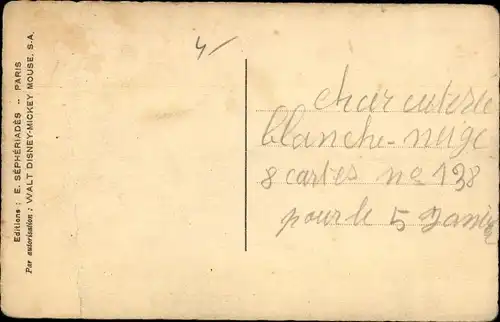 Editions : E. SÉPHÉRIADÈS -- PARIS
Par autorisation : WALT DISNEY-MICKEY MOUSE. S.A.
charcuterie
blanche-neige
8 cartes no 138
pour le 5 Janvier